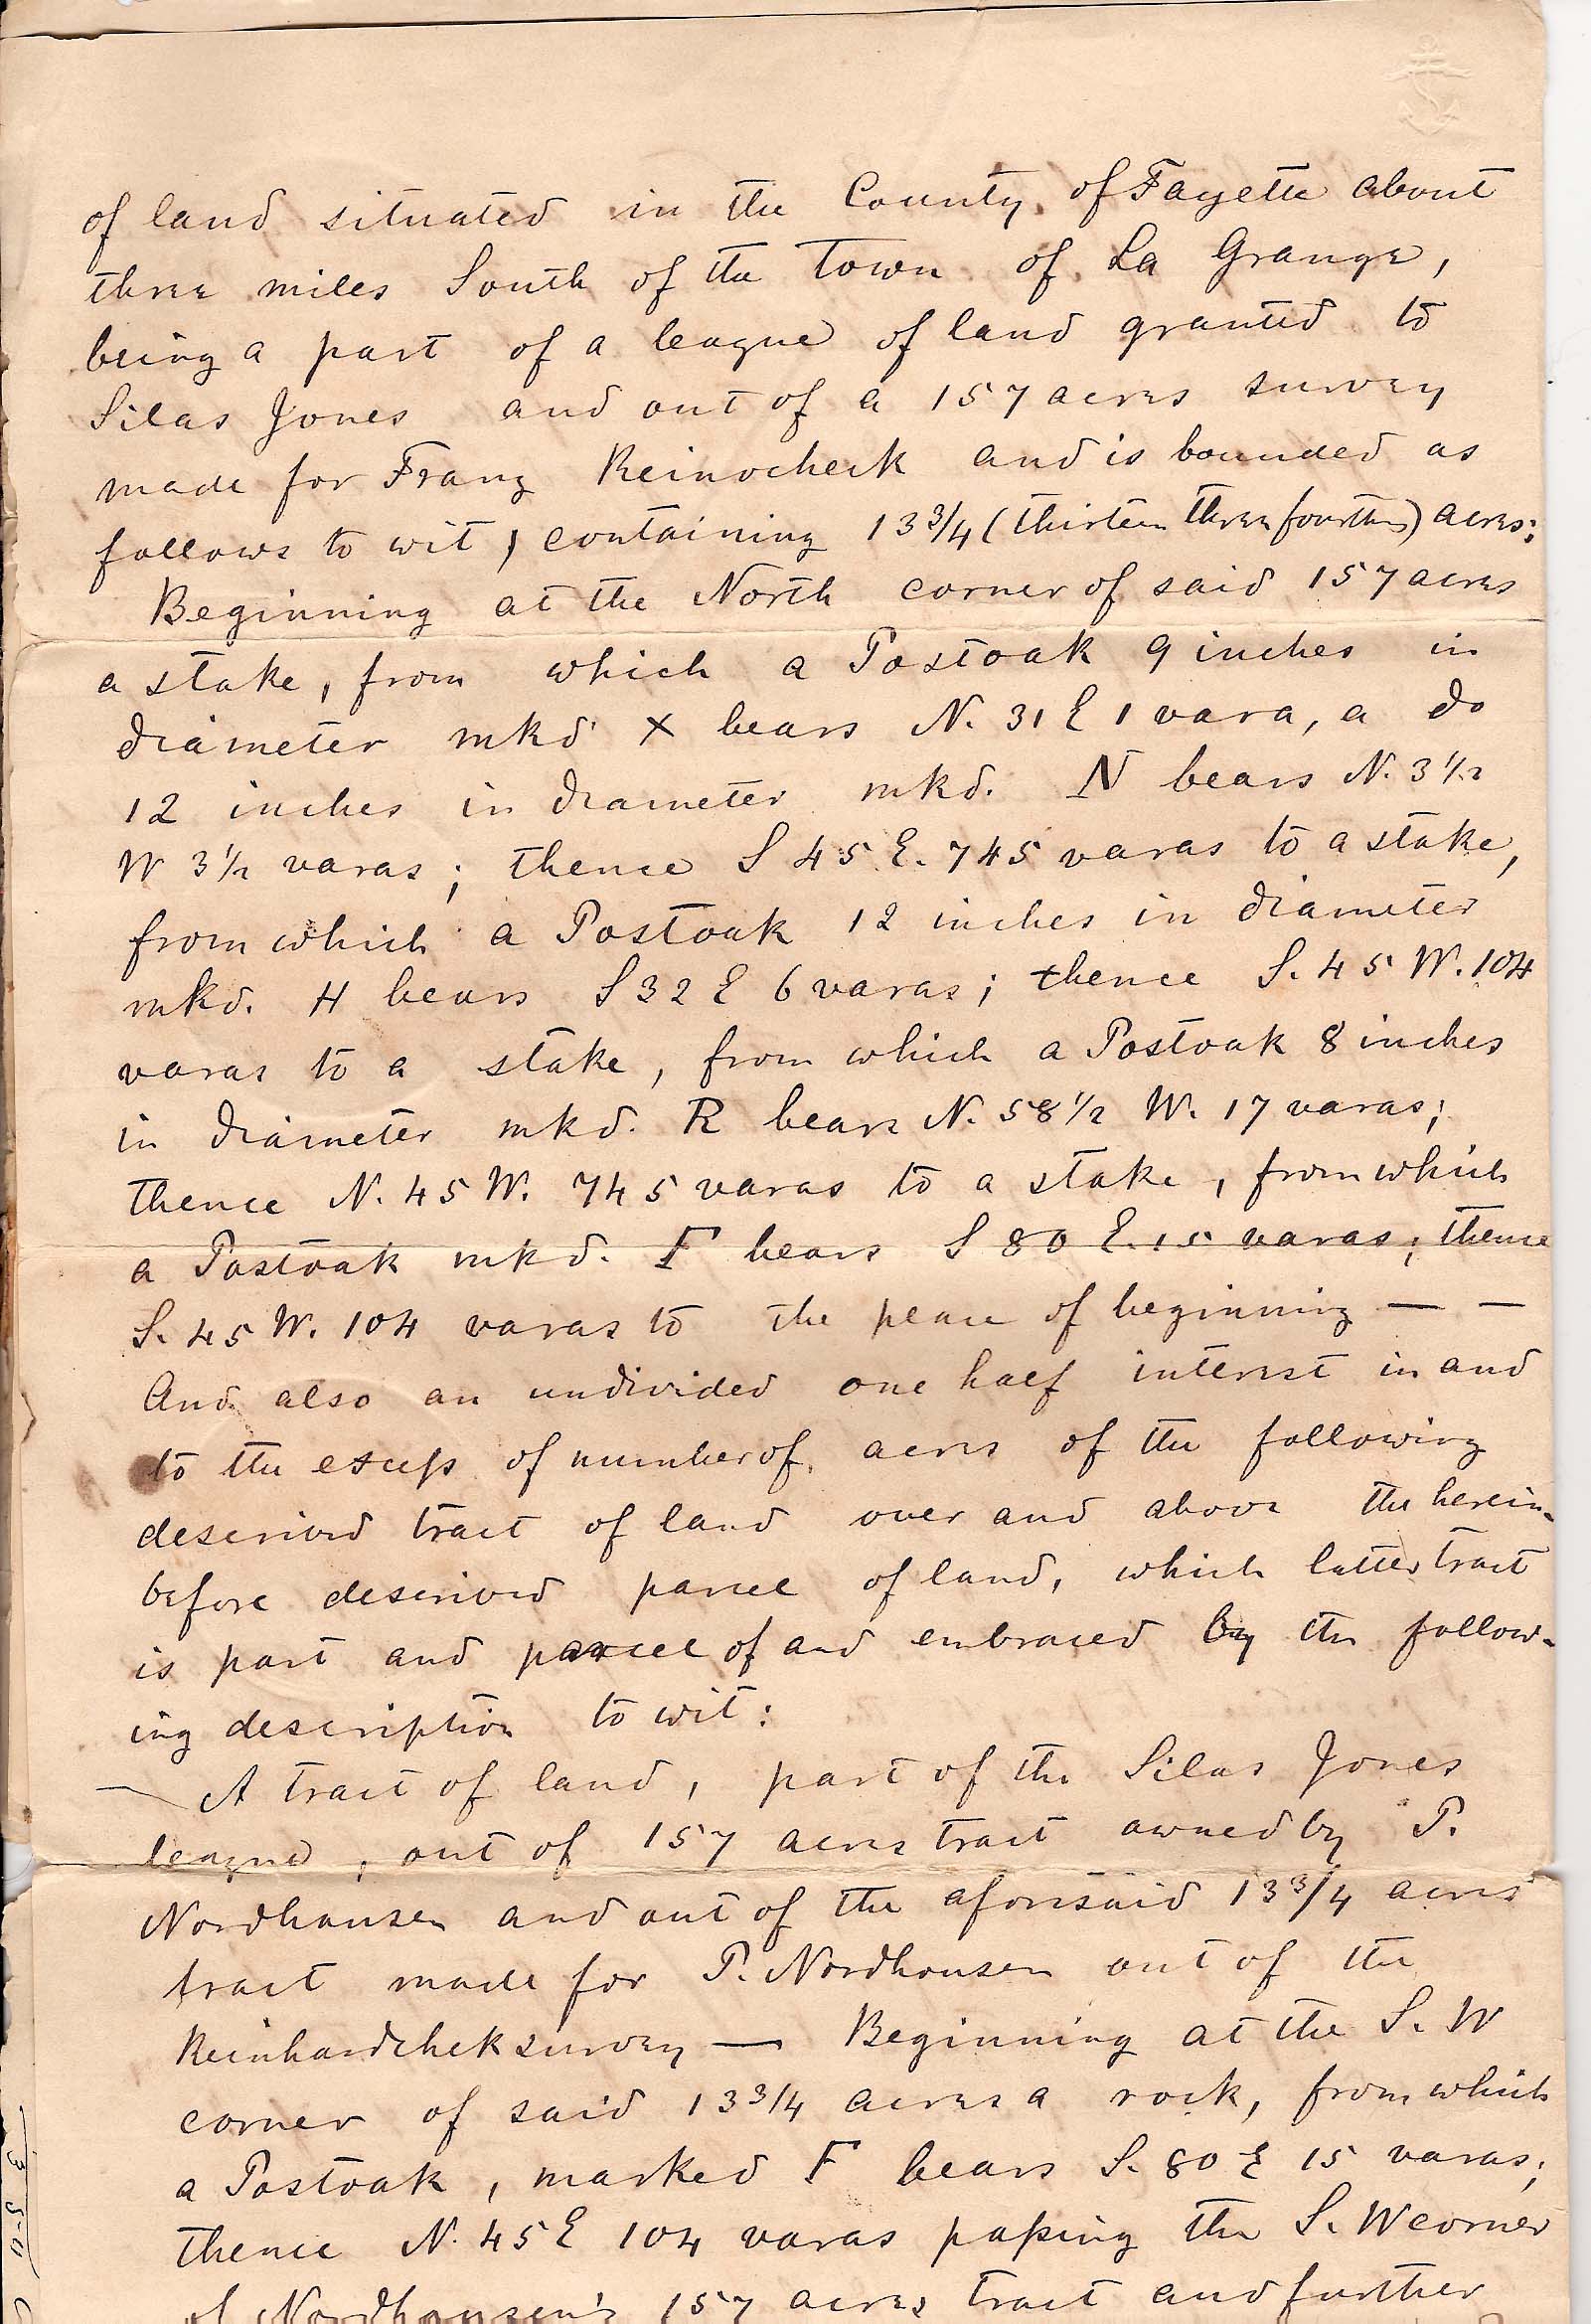 of land situated in the County of Fayette about
three miles South of the Town of La Grange,
being a part of a league of land granted to
Silas Jones and out of a 157 acres survey
made for Franz Reinocheck and is bounded as
follows to wit, containing 13 3/4 (thirteen three fourths) acres:
Beginning at the North corner of said 157 acres
a stake, from which a Postoak 9 inches in
diameter mkd X bears N. 31 E 1 vara, a do
12 inches in diameter mkd. N bears N. 3 1/2
W 3 1/2 varas; thence S 45 E. 745 varas to a stake,
from which a Postoak 12 inches in diameter
mkd. H bears S 32 E 6 varas; thence S. 45 W. 104
varas to a stake, from which a Postoak 8 inches
in diameter mkd. R bears N. 58 1/2 W. 17 varas;
thence N. 45 W. 745 varas to a stake, from which
a Postoak mkd. F bears S 80 E. 15 varas; thence
S. 45 W. 104 varas to the place of beginning — —
And also an undivided one half interest in and
to the excess of number of acres of the following
described tract of land over and above the herein-
before described parcel of land, which latter tract
is part and parcel of and embraced by the follow-
ing description to wit:
— A tract of land, part of the Silas Jones
league, out of 157 acres tract owned by P.
Nordhausen and out of the aforesaid 13 3/4 acres
tract made for P. Nordhausen out of the
Reinhardchek survey — Beginning at the S. W
corner of said 13 3/4 acres a rock, from which
a Postoak, marked F bears S. 80 E 15 varas;
thence N. 45 E 104 varas passing the S. W corner
of Nordhausen's 157 acres tract and further